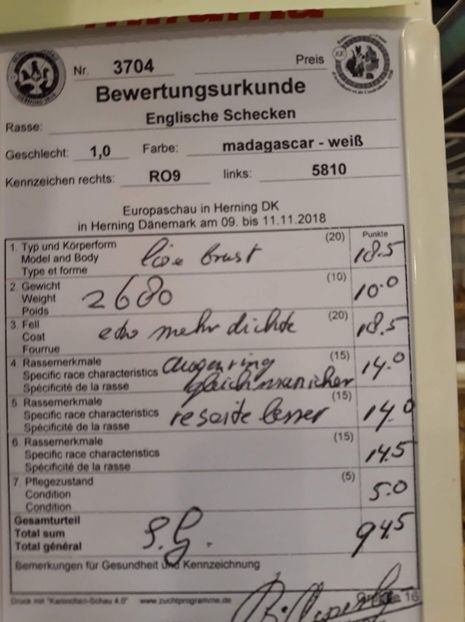 Nr. 3704 Preis
Bewertungsurkunde
Rasse: Englische Schecken
Geschlecht: 1,0 Farbe: madagascar - weiß
Kennzeichen rechts: RO9 links: 5810
Europaschau in Herning DK
in Herning Dänemark am 09. bis 11.11.2018
Punkte
1. Typ und Körperform (20)
Model and Body brust 18.5
Type et forme
2. Gewicht (10)
Weight 2680 10.0
Poids
3. Fell (20)
Coat mehr dichte 18.5
Fourrue
4. Rassemerkmale (15)
Specific race characteristics Augenring 14.0
Spécificité de la rasse
5. Rassemerkmale (15)
Specific race characteristics reseite besser 14.0
Spécificité de la rasse
6. Rassemerkmale (15)
Specific race characteristics 14.5
Spécificité de la rasse
7. Pflegezustand (5)
Condition 5.0
Condition
Gesamturteil
Total sum S.G. 94.5
Total général
Bemerkungen für Gesundheit und Kennzeichnung
Druck mit "Kaninchen-Schau 4.0" www.zuchtprogramme.de 16